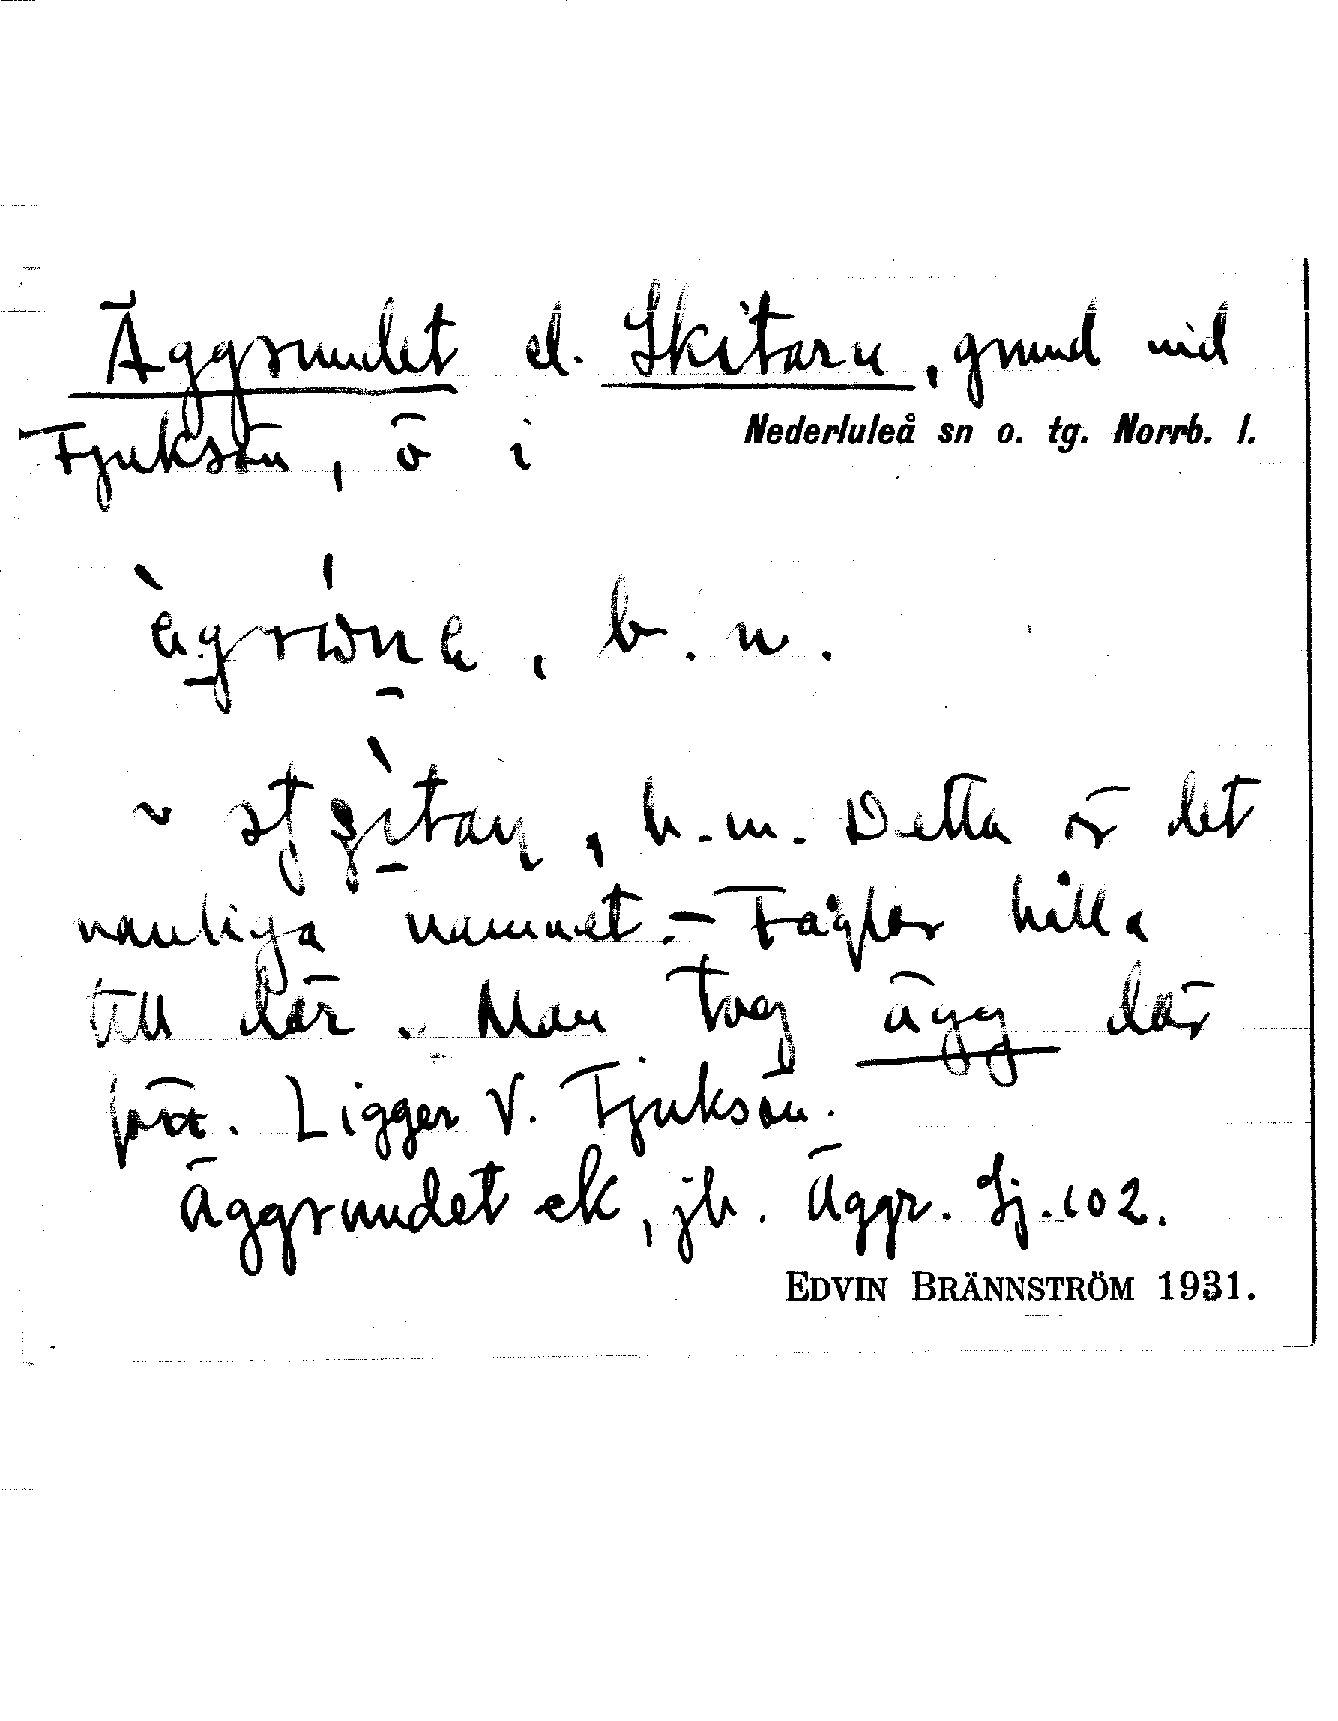 Äggrundet el. Skitarn, grund vid
Tjuksön, ö i Nederluleå sn o. tg. Norrb. l.
, b. n.
~ , b. m. Detta är det
vanliga namnet. – Fåglar hålla
till där. Man tog ägg där
förr. Ligger V. Tjuksön.
Äggrundet ek, jb. Äggr. Sj. 102.
EDVIN BRÄNNSTRÖM 1931.